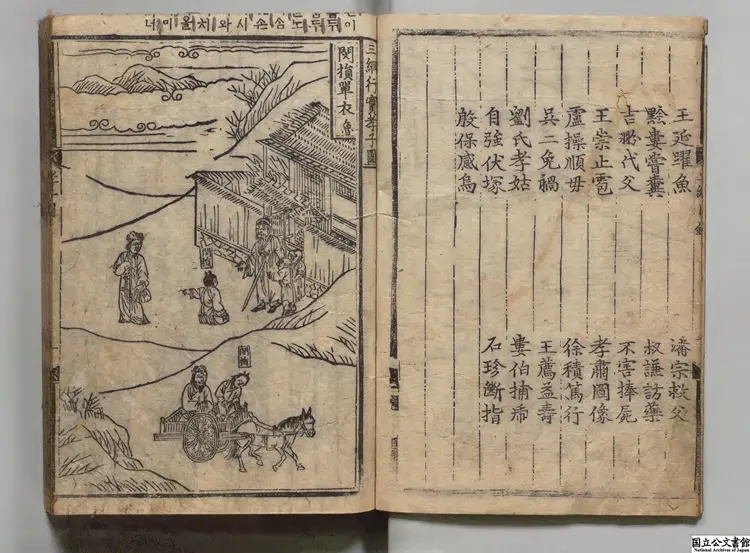 王延躍魚 潘宗救父
黔婁嘗糞 叔謙訪藥
吉翂代父 不害捧屍
王崇止雹 孝肅圖像
盧操順母 徐積篤行
吳二免禍 王薦益壽
劉氏孝姑 婁伯捕虎
自強伏塚 石珍斷指
殷保感烏
三綱行實孝子圖
閔損單衣 魯
閔損
国立公文書館
National Archives of Japan